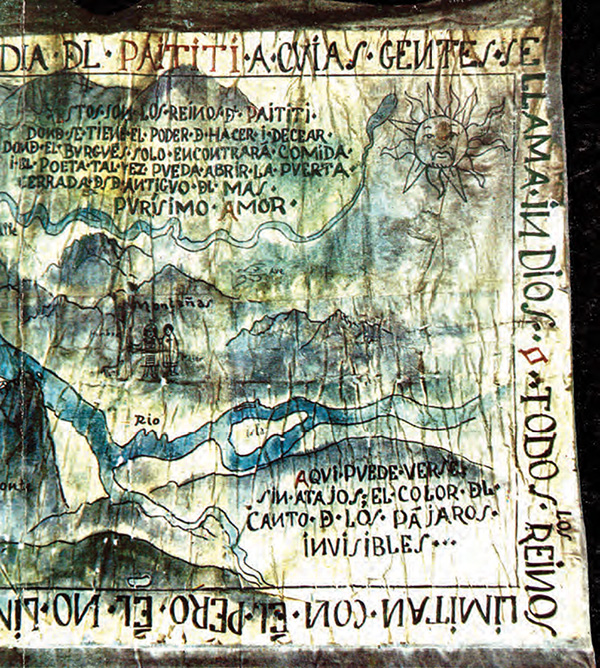 DIA·DL·PAITITI·A·CVIAS·GENTES·SE
LLAMA·INDIOS··TODOS·LOS·REINOS
LIMITAN·CON·ÉL·PERO·ÉL·NO·LI
STOS·SON·LOS·REINOS·D·PAITITI·
DOND·SE·TIENE·EL·PODER·D·HACER·I·DECEAR·
DOND·EL·BVRGVES·SOLO·ENCONTRARÁ·COMIDA·
I·EL·POETA·TAL·VEZ·PVEDA·ABRIR·LA·PVERTA·
CERRADA·DSD·ANTIGVO·DL·MAS·
PVRISIMO·AMOR·
Montañas
Rio
onte
AQVI·PVEDE·VERSE,
SIN·ATAJOS,·EL·COLOR·DL·
CANTO·D·LOS·PÁJAROS·
INVISIBLES···